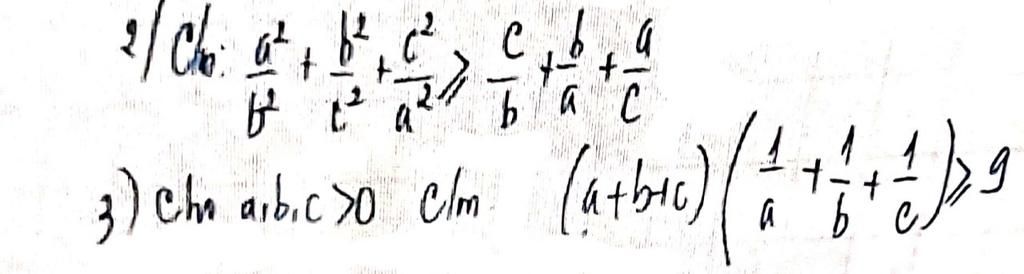 2/ Cm: a²/b² + b²/c² + c²/a² ⩾ c/b + b/a + a/c
3) cho a,b,c >0 c/m (a+b+c)(1/a + 1/b + 1/c) ⩾ 9